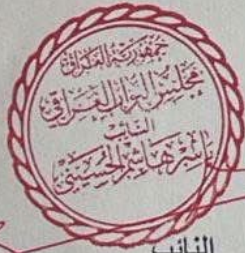 جمهورية العراق
مجلس النواب العراقي
النائب
ياسر هاشم الحسيني
النائب